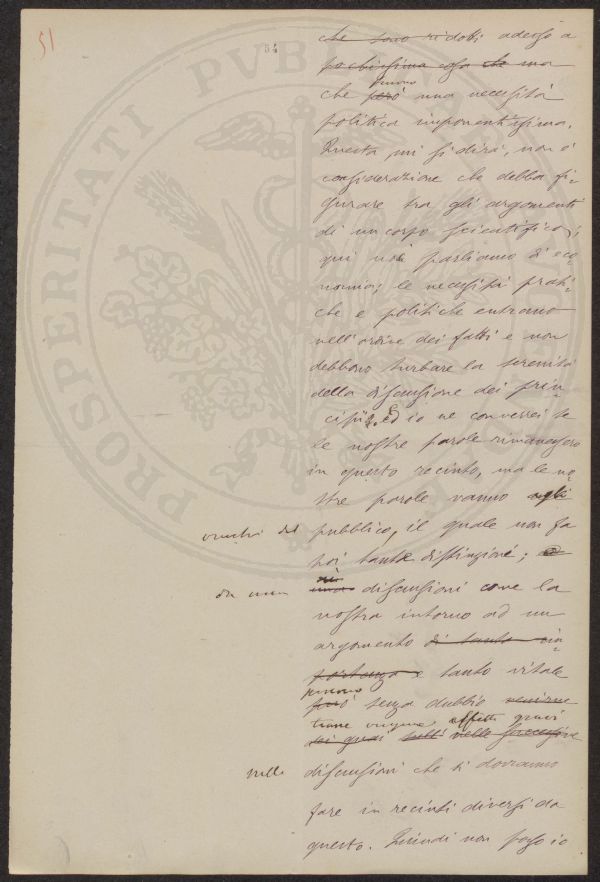 51
54
PROSPERITATI PVBLICAE
che sono ridotti adesso a
pochissima cosa che ma
sieno
che però una necessità
politica imponentissima.
Questa, mi si dirà, non è
considerazione che debba fi-
gurare tra gli argomenti
di un corpo scientifico;
qui noi parliamo di eco-
nomia; le necessità prati-
che e politiche entrano
nell'ordine dei fatti e non
debbono turbare la serenità
della discussione dei prin-
cipii, Ed io ne converrei se
le nostre parole rimanessero
in questo recinto, ma le no-
stre parole vanno agli
orecchi del pubblico, il quale non fa
poi tante distinzioni; e
da una discussioni come la
nostra intorno ad un
argomento di tanta im-
portanza e tanto vitale
possono
può senza dubbio venirne
trarre origine effetti gravi
dei guai tutti nelle successive
nelle discussioni che si dovranno
fare in recinti diversi da
questo. Quindi non posso io